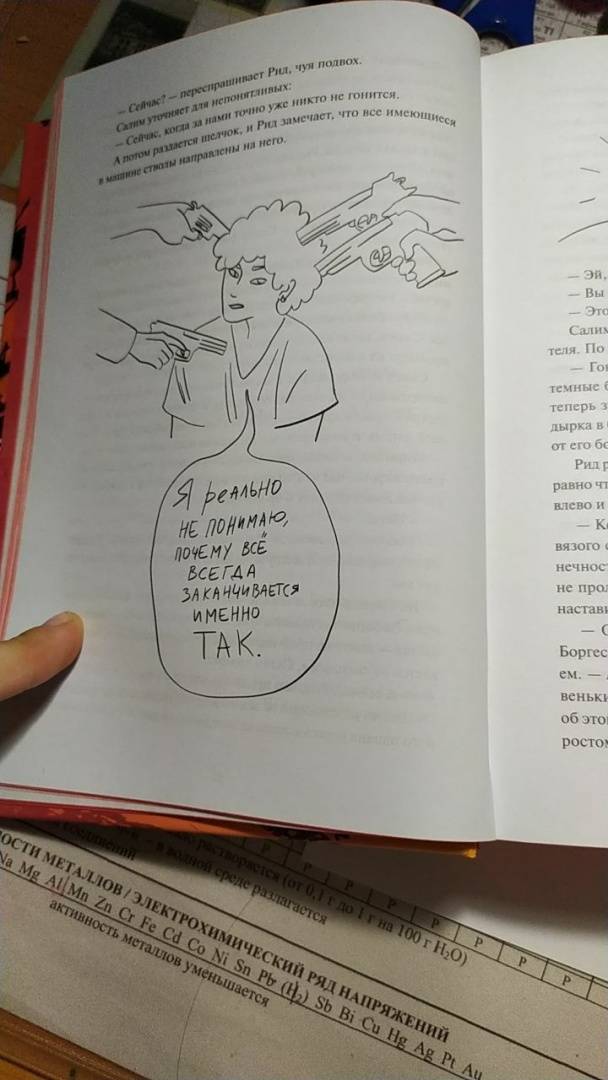 — Сейчас? — переспрашивает Рид, чуя подвох.
Салим уточняет для непонятливых:
— Сейчас, когда за нами точно уже никто не гонится.
А потом раздается щелчок, и Рид замечает, что все имеющиеся
в машине стволы направлены на него.
Я реально
не понимаю,
почему всё
всегда
заканчивается
именно
ТАК.
— Эй,
— Вы
— Это
Салим
теля. По
— Гон
темные б
теперь з
дырка в
от его бо
Рид р
равно чт
влево и
— Ке
вязого
нечност
не прол
настави
— С
Боргес
ем. —
веньки
об этой
ростом
растворяется (от 0,1 г до 1 г на 100 г H₂O)
в водной среде разлагается
соединений
Р Р Р Р Р Р Р
НОСТИ МЕТАЛЛОВ / ЭЛЕКТРОХИМИЧЕСКИЙ РЯД НАПРЯЖЕНИЙ
Na Mg Al Mn Zn Cr Fe Cd Co Ni Sn Pb (H₂) Sb Bi Cu Hg Ag Pt Au
активность металлов уменьшается